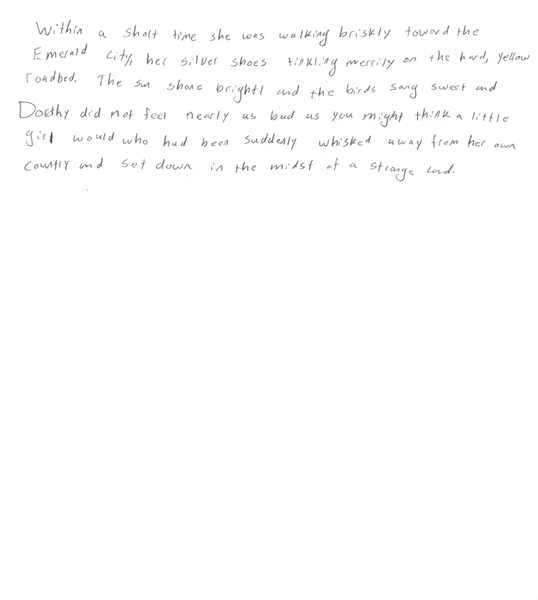 Within a short time she was walking briskly toward the
Emerald City, her silver shoes tinkling merrily on the hard, yellow
roadbed. The sun shone brightl and the birds sang sweet and
Dorothy did not feel nearly as bad as you might think a little
girl would who had been suddenly whisked away from her own
country and set down in the midst of a strange land.